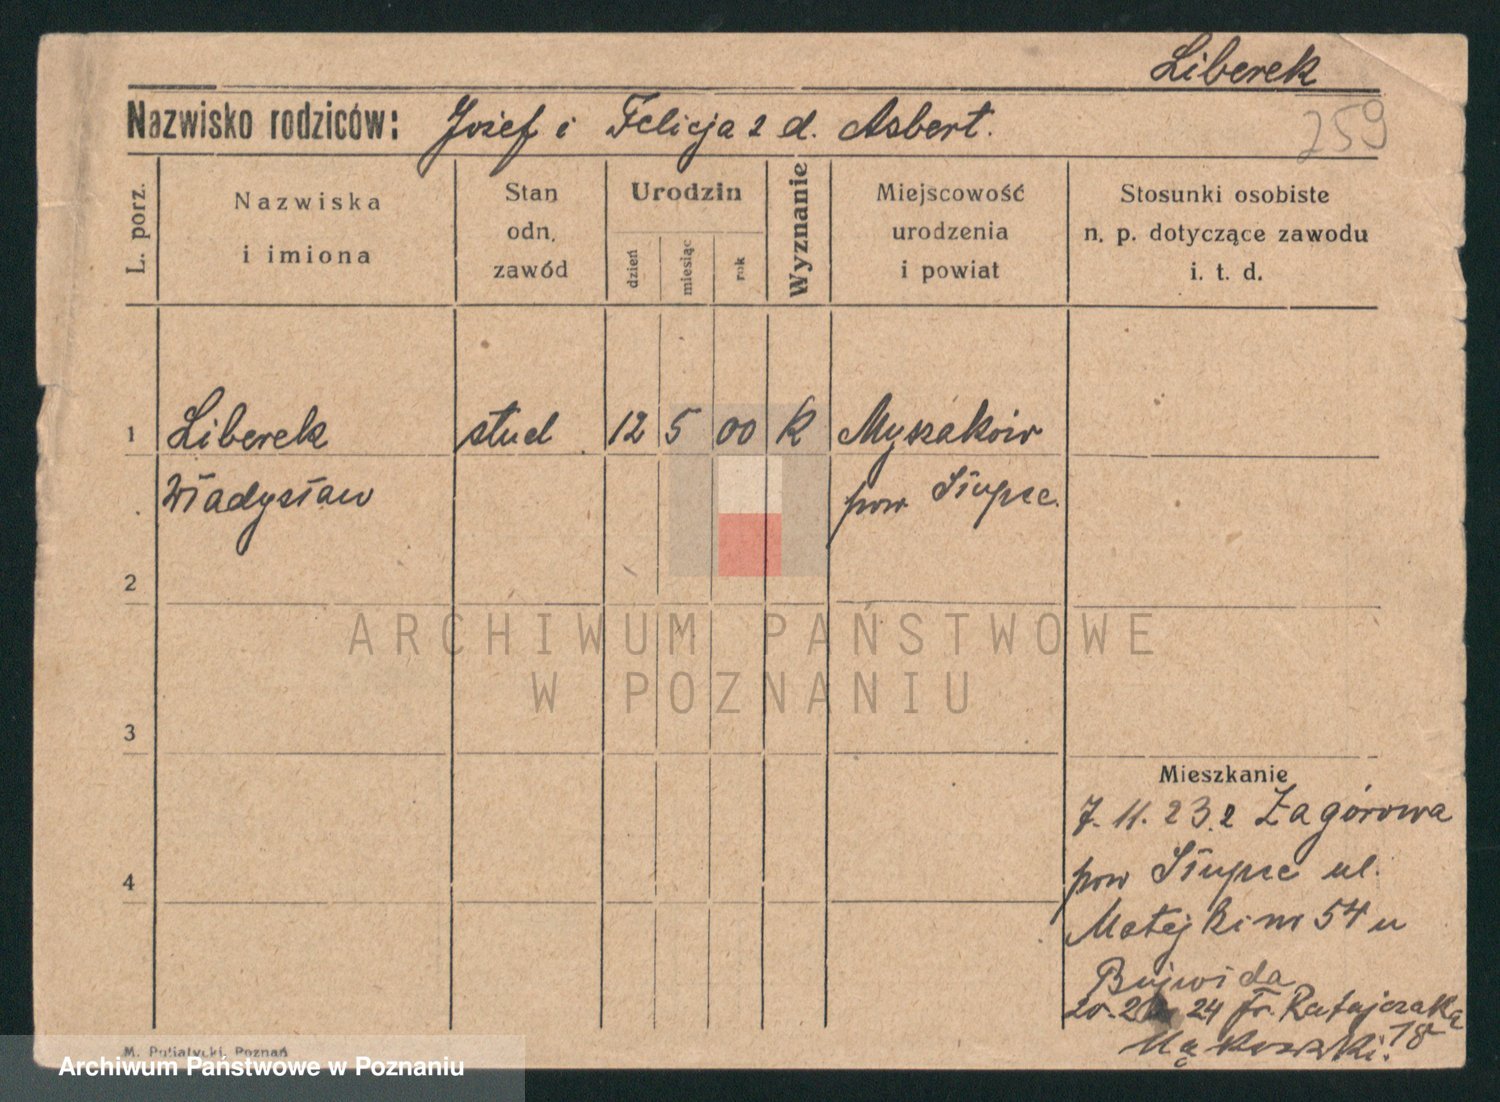 Liberek
259
Nazwisko rodziców: Józef i Felicja z d. Asbert.
L. porz.
Nazwiska
i imiona
Stan
odn.
zawód
Urodzin
dzień
miesiąc
rok
Wyznanie
Miejscowość
urodzenia
i powiat
Stosunki osobiste
n. p. dotyczące zawodu
i. t. d.
1 Liberek stud 12 5 00 k Myszaków
Władysław pow Słupce.
2
ARCHIWUM PAŃSTWOWE
W POZNANIU
3
Mieszkanie
7. 11. 23. z Zagórowa
pow Słupce ul.
4
Matejki nr 54 u
Bujwida
24 Fr. Ratajczaka
18
M. Putiatycki, Poznań
Archiwum Państwowe w Poznaniu